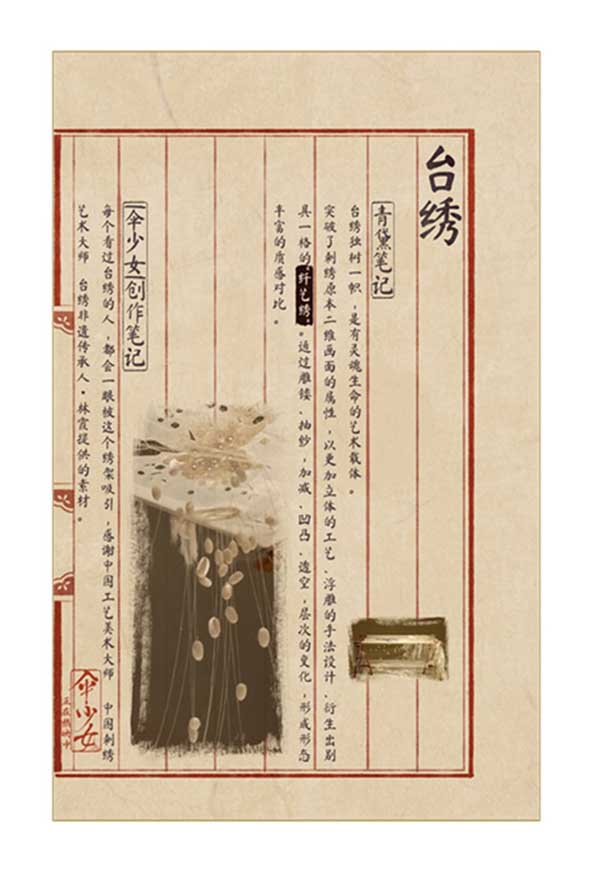 台绣
青黛笔记
台绣独树一帜，是有灵魂生命的艺术载体。
突破了刺绣原本二维画面的属性，以更加立体的工艺、浮雕的手法设计、衍生出别
具一格的“纤艺绣”。通过雕镂、抽纱、加减、凹凸、透空，层次的变化，形成形态
丰富的质感对比。
伞少女创作笔记
每个看过台绣的人，都会一眼被这个绣架吸引，感谢中国工艺美术大师 中国刺绣
艺术大师 台绣非遗传承人·林霞提供的素材。
伞少女
正在热映中